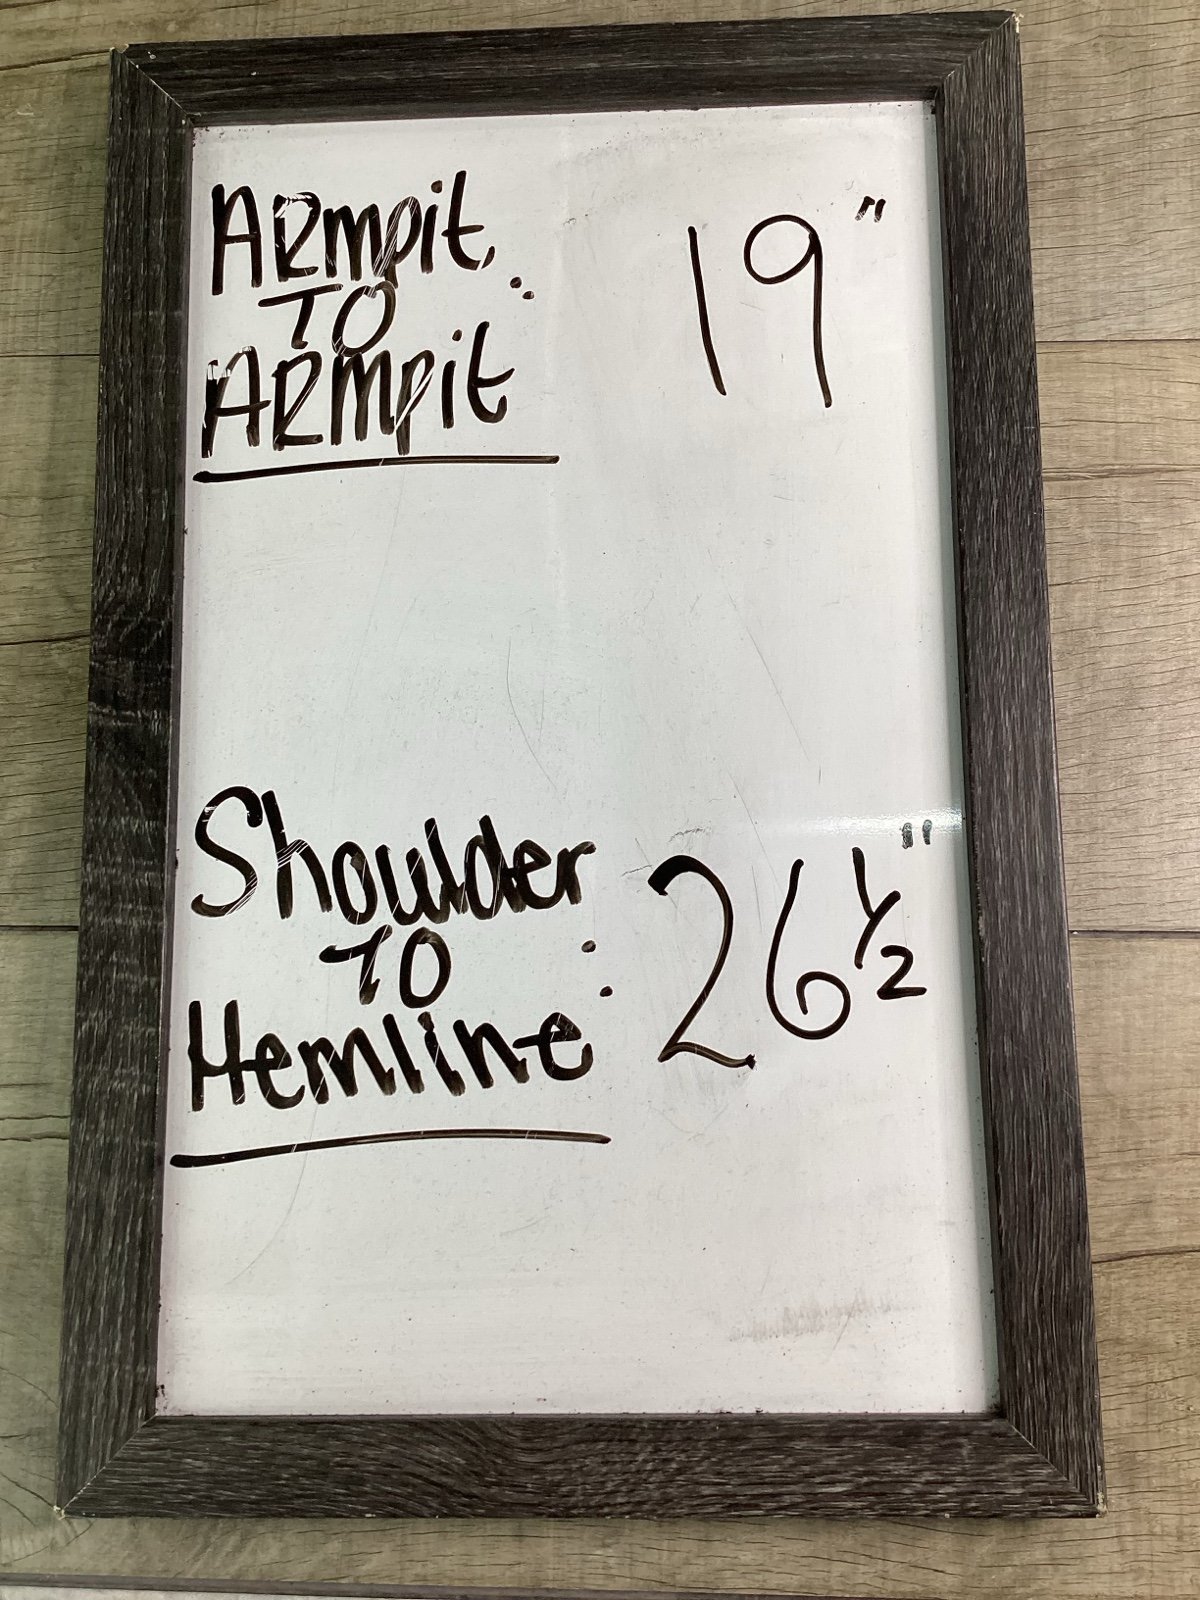 ARmpit
TO :
ARmpit
19"
Shoulder
TO :
Hemline
26 1/2"